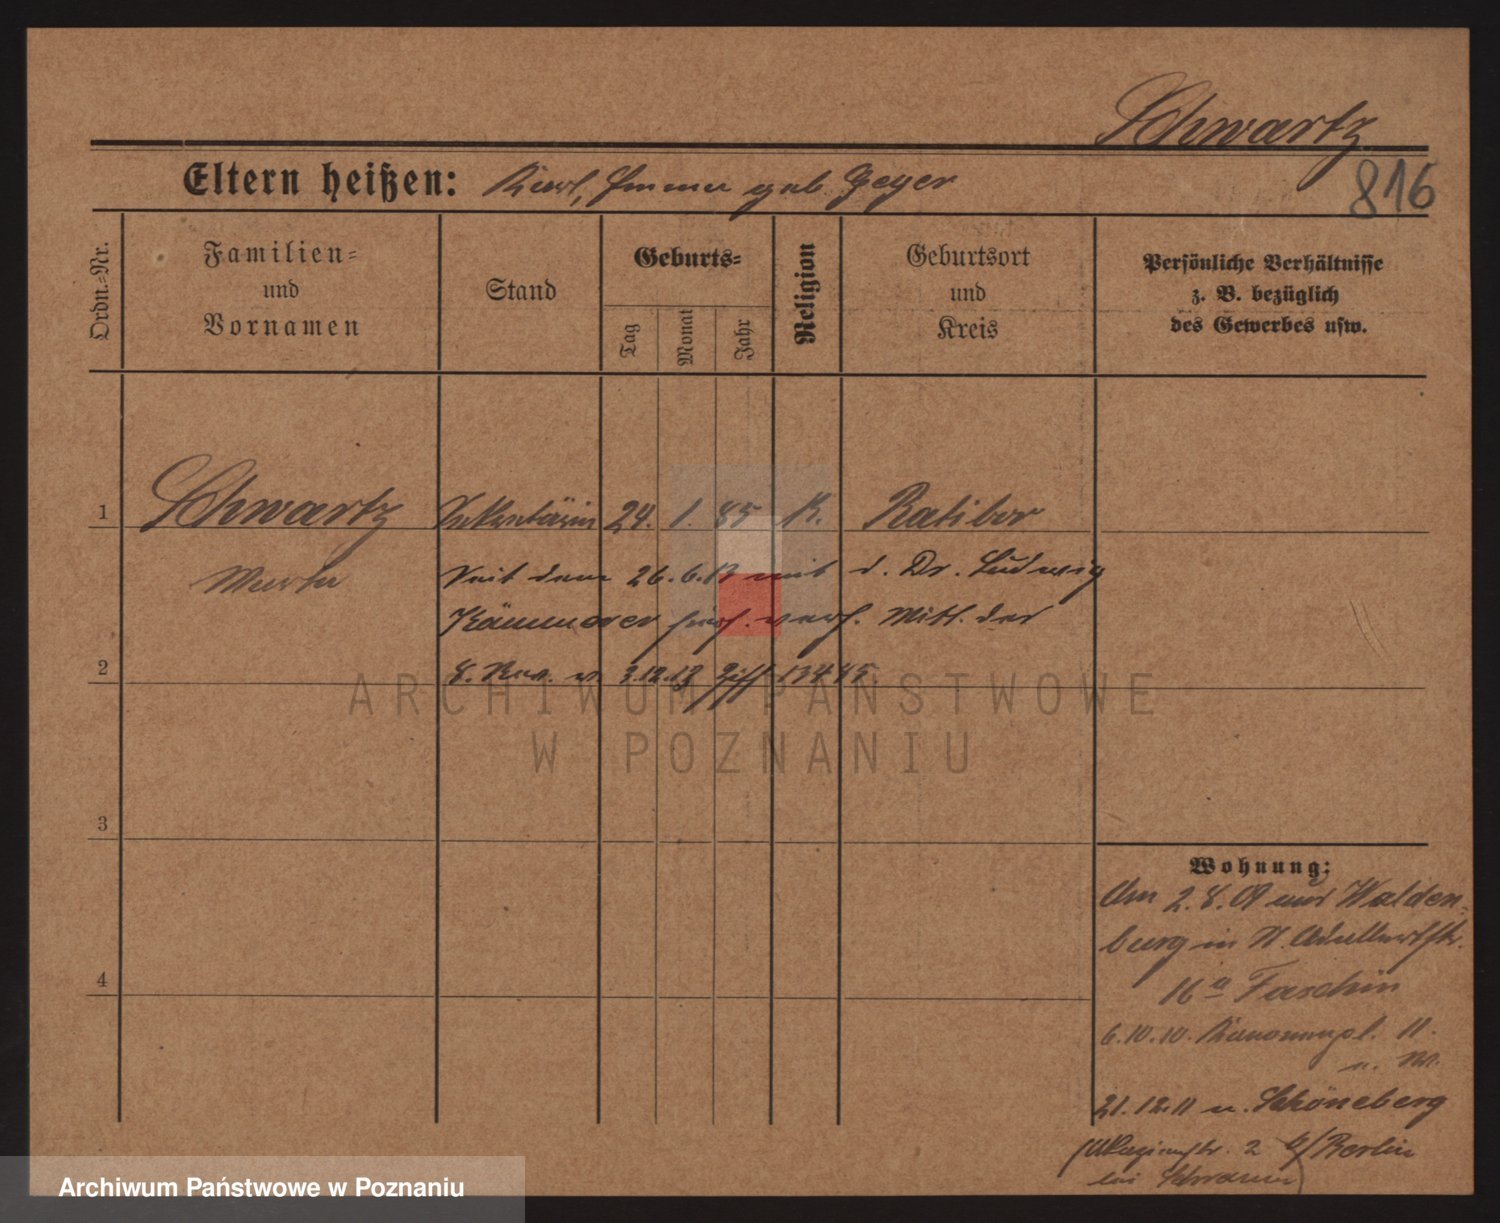 Schwartz
816
Eltern heißen: Karl, Emma geb Geyer
Ordn.-Nr.
Familien- und Vornamen
Stand
Geburts-
Tag
Monat
Jahr
Religion
Geburtsort und Kreis
Persönliche Verhältnisse
z. B. bezüglich
des Gewerbes usw.
1 Schwartz Sekretärin 24. 1. 85 K. Ratibor
Marta
Seit dem 26.6.13 mit d. Dr. Ludwig
Kämmerer verh. Mitt. der
2
8. Rev. v. 3.12.13
3
4
Wohnung:
Am 2.8.09 aus Walden-
burg in
16a Taschin
6.10.10. 11.
n. W.
21.12.11 n. Schöneberg
2 b/Berlin
bei Schramm
ARCHIWUM PAŃSTWOWE
W POZNANIU
Archiwum Państwowe w Poznaniu